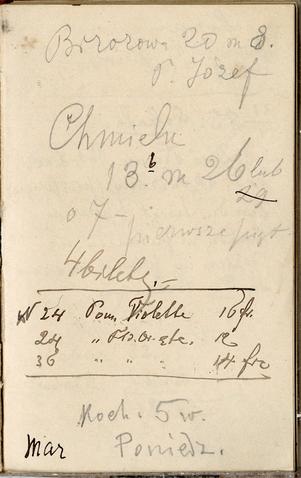 Brzozowa 20 m 8.
P. Józef
Chmieln
13 b m 26 lub
29
o 7 —
pierwsze pięt.
4 bilety.—
N 24 Pom. Violette 16 fr.
29 "
36 " " " 14 frc
Koch. 5 w.
Mar Poniedz.